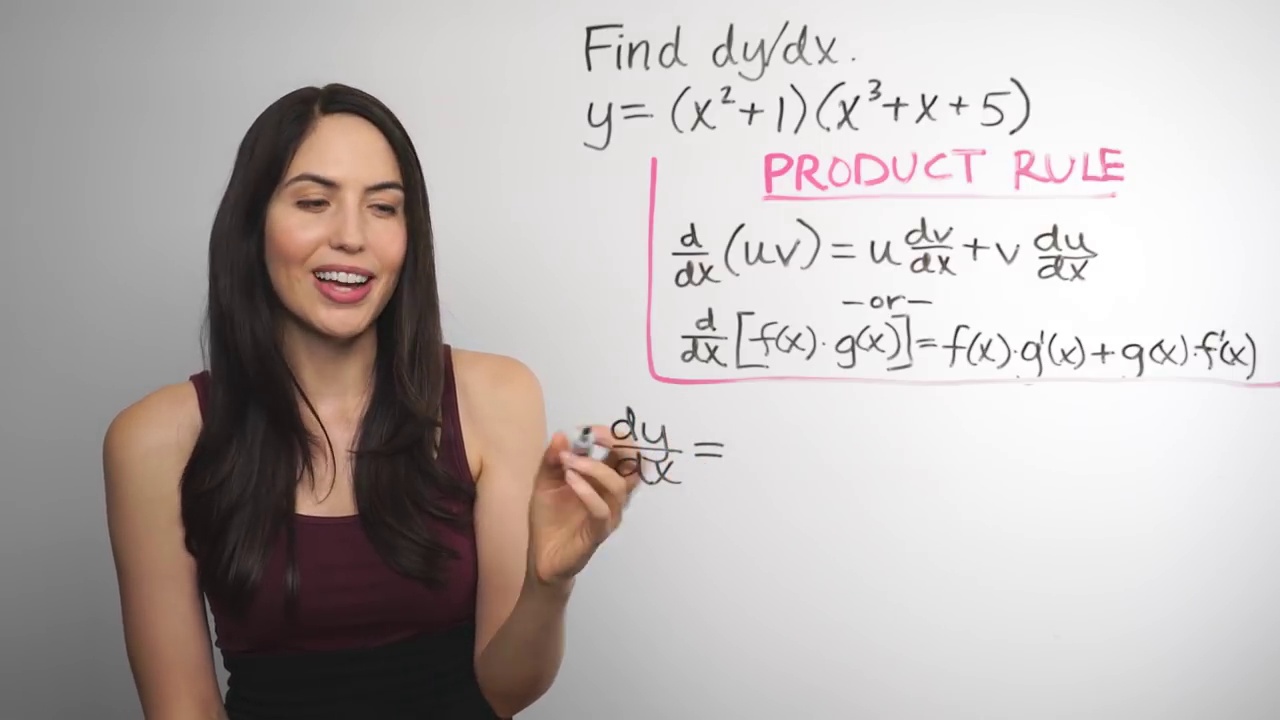 Find dy/dx.
y= (x²+1)(x³+x+5)
PRODUCT RULE
d/dx (uv) = u dv/dx + v du/dx
—or—
d/dx [f(x)·g(x)] = f(x)·g'(x)+g(x)·f'(x)
dy/dx =